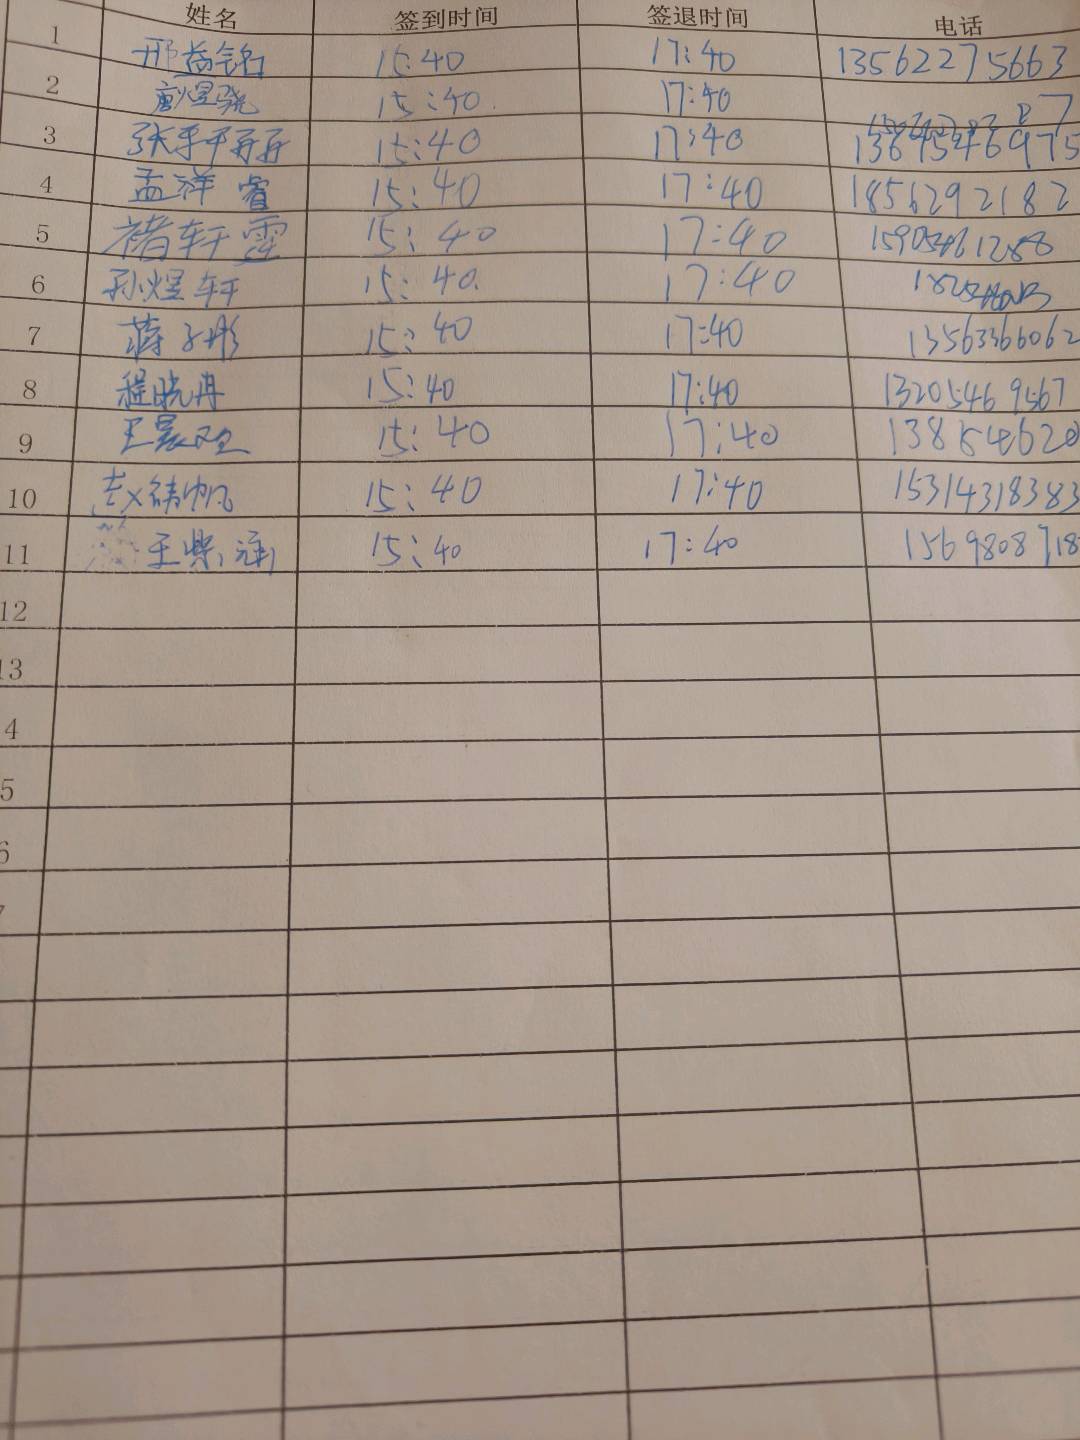 姓名 签到时间 签退时间 电话
1 邢益铭 15:40 17:40 13562275663
2 唐煜骁 15:40. 17:40
3 15:40 17:40
4 孟洋睿 15:40 17:40 1856292182
5 褚轩霆 15:40 17:40
6 孙煜轩 15:40. 17:40
7 蒋子彤 15:40 17:40 13563366062
8 程晓冉 15:40 17:40 13205469567
9 15:40 17:40
10 赵帏帆 15:40 17:40 15314318383
11 15:40 17:40 1569808718
12
13
4
5
6
7